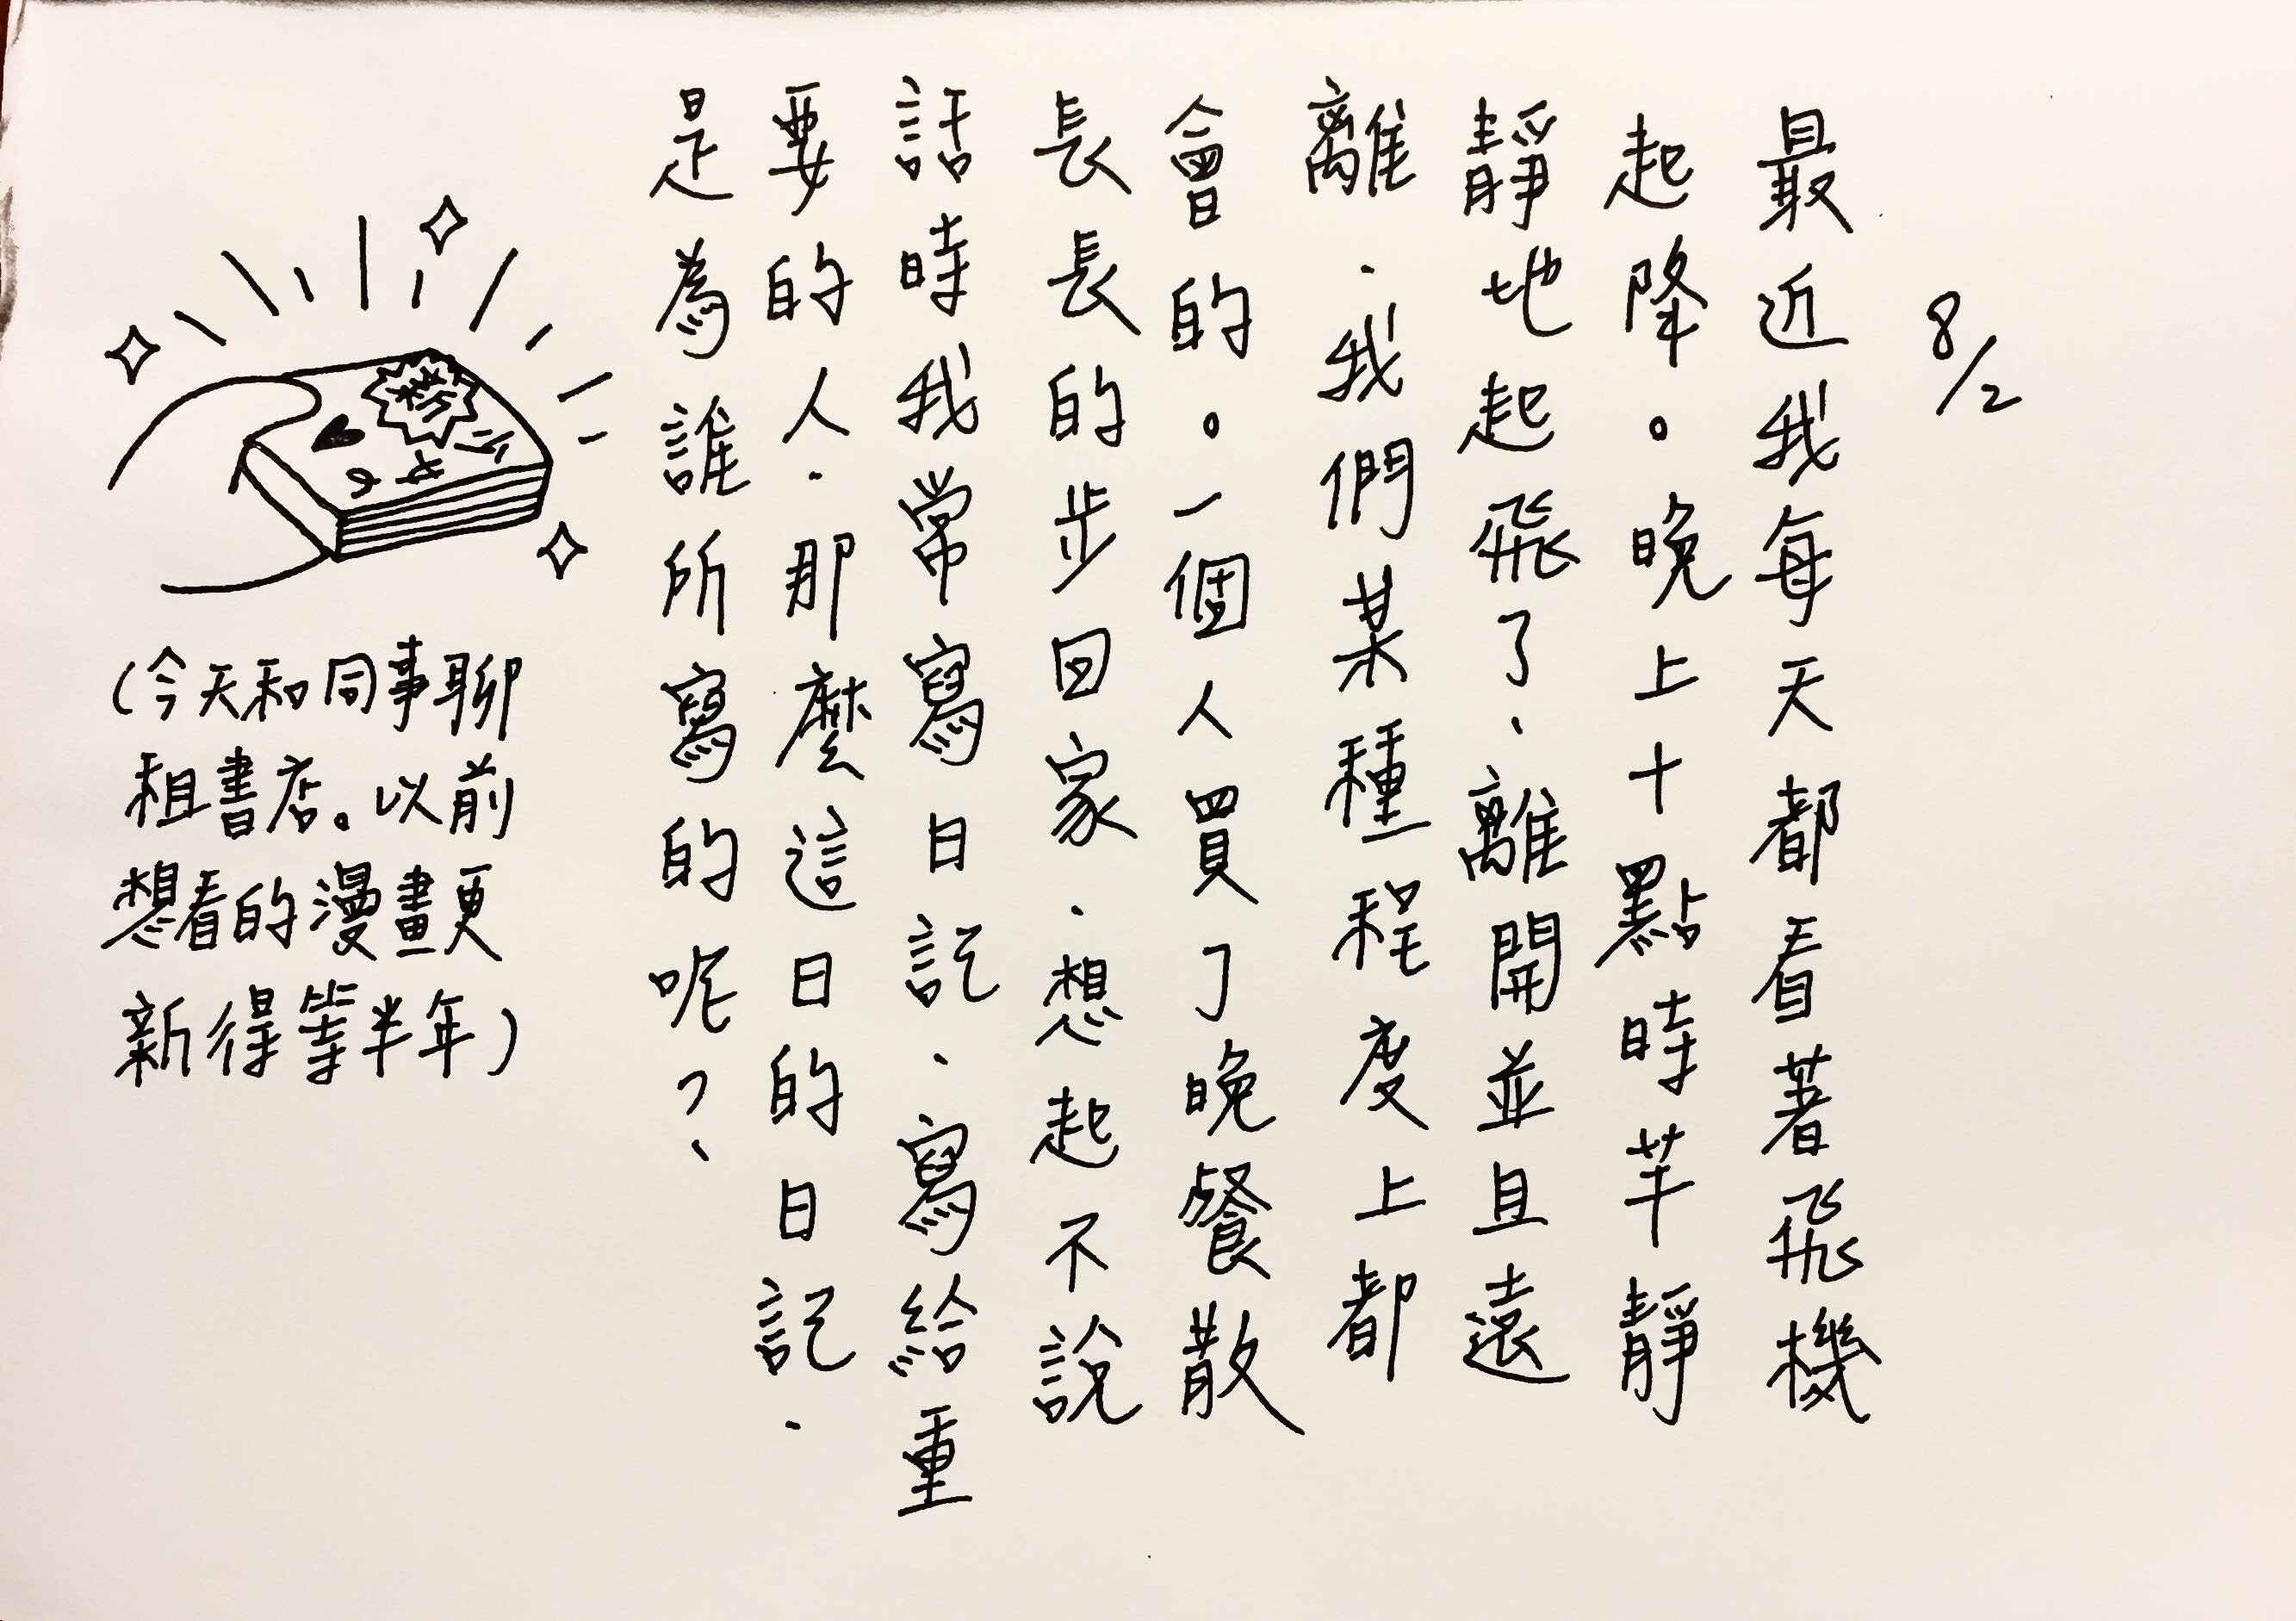 8/2
最近我每天都看著飛機
起降。晚上十點時芊靜
靜地起飛了、離開並且遠
離.我們某種程度上都
會的。一個人買了晚餐散
長長的步回家.想起不說
話時我常寫日記、寫給重
要的人.那麼這日的日記.
是為誰所寫的呢?、
(今天和同事聊
租書店。以前
想看的漫畫更
新得等半年)